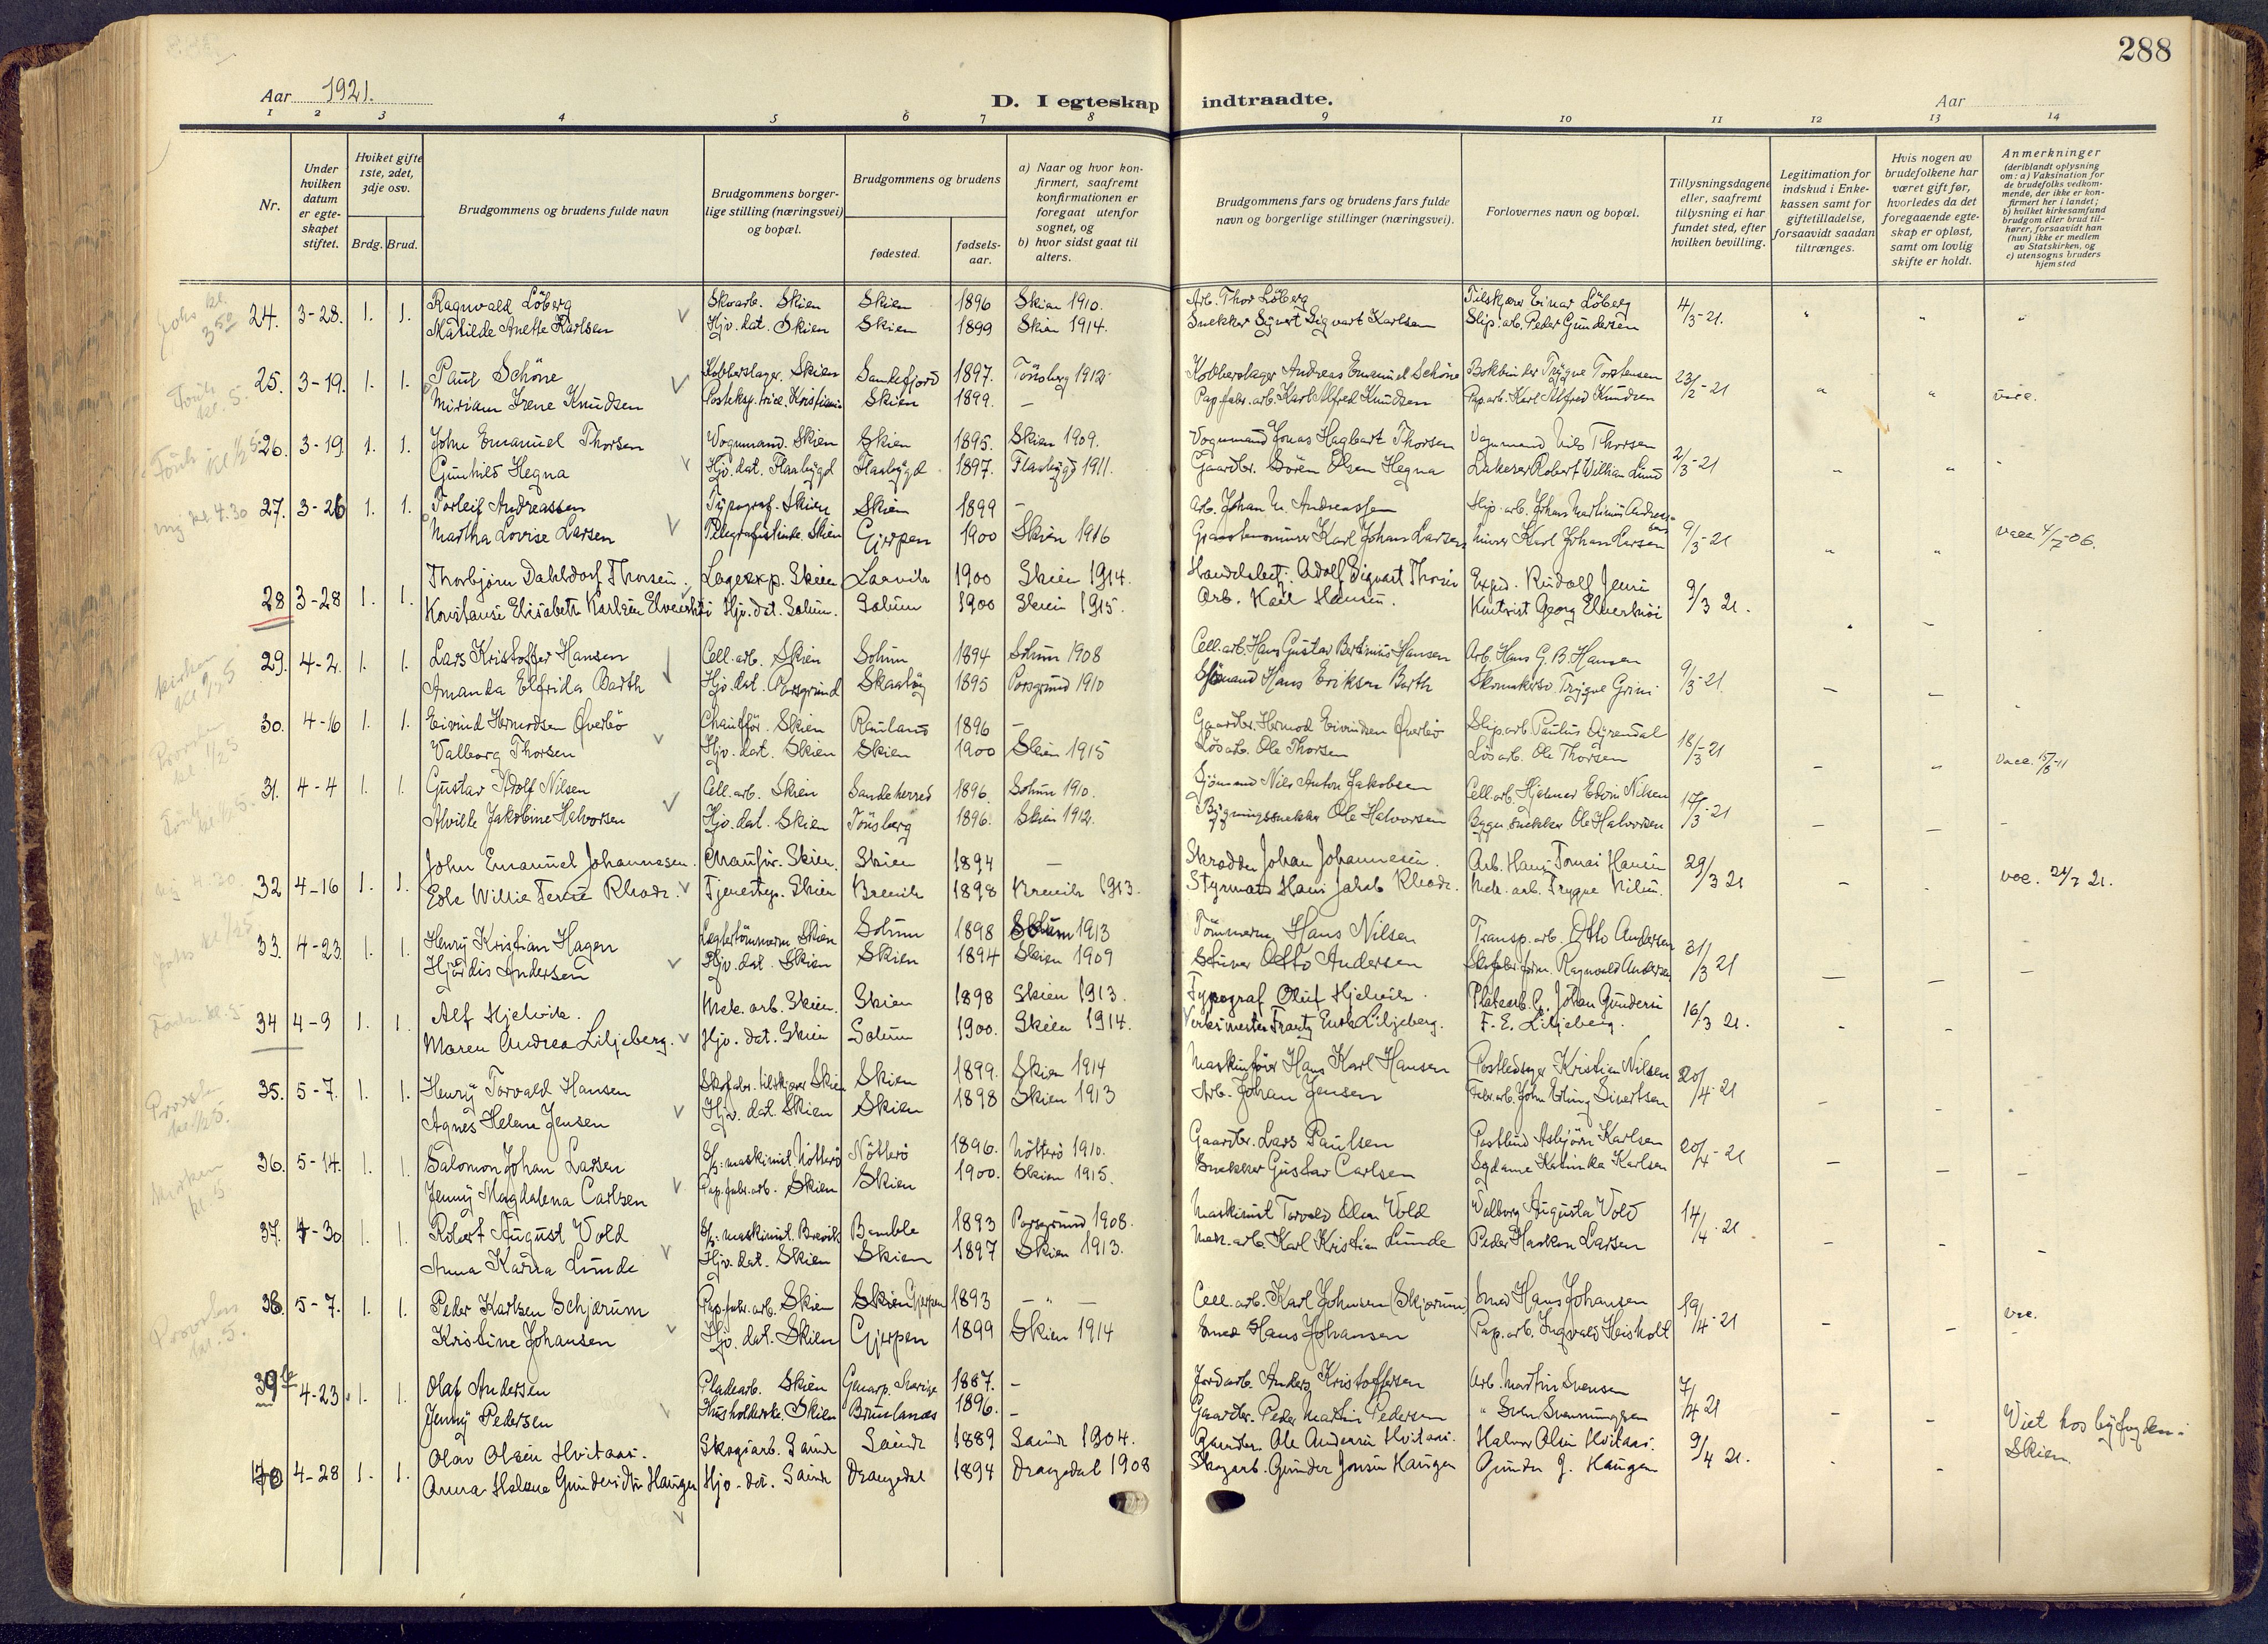 288
Aar 1921.
D. I egteskap indtraadte.
Aar
1 2 3 4 5 6 7 8 9 10 11 12 13 14
Nr.
Under hvilken datum er egteskapet stiftet.
Hviket gifte 1ste, 2det, 3dje osv.
Brdg. Brud.
Brudgommens og brudens fulde navn
Brudgommens borgerlige stilling (næringsvei) og bopæl.
Brudgommens og brudens
fødested.
fødselsaar.
a) Naar og hvor konfirmert, saafremt konfirmationen er foregaat utenfor sognet, og
b) hvor sidst gaat til alters.
Brudgommens fars og brudens fars fulde navn og borgerlige stillinger (næringsvei).
Forlovernes navn og bopæl.
Tillysningsdagene eller, saafremt tillysning ei har fundet sted, efter hvilken bevilling.
Legitimation for indskud i Enkekassen samt for giftetilladelse, forsaavidt saadan tiltrænges.
Hvis nogen av brudefolkene har været gift før, hvorledes da det foregaaende egteskap er opløst, samt om lovlig skifte er holdt.
Anmerkninger (deriblandt oplysning om: a) Vaksination for de brudefolks vedkommende, der ikke er konfirmert her i landet; b) hvilket kirkesamfund brudgom eller brud tilhører, forsaavidt han (hun) ikke er medlem av Statskirken, og c) utensogns bruders hjemsted
24. 3-28. 1. 1. Ragnvald Löberg Skoarb. Skien Skien 1896 Skien 1910. Arb. Thor Löberg Tilskjærer Einar Löberg 4/3-21.
Matilde Anette Karlsen Hjv. dat. Skien Skien 1899 Skien 1914. Snekker Sigvart Karlsen Slip. arb. Peder Gundersen
25. 3-19. 1. 1. Paul Schöne Kobberslager. Skien Sandefjord 1897. Tönsberg 1912 Kobberslager Andreas Emanuel Schöne Bokbinder Trygve Torstensen 23/2-21 vacc.
Miriam Irene Knudsen Skien 1899. — Pap.fabr.arb. Karl Alfred Knudsen Pap.arb. Karl Alfred Knudsen
26. 3-19. 1. 1. John Emanuel Thorsen Vognmand. Skien Skien 1895. Skien 1909. Vognmand Jonas Hagbart Thorsen Vognmand Nils Thorsen 2/3-21
Gunhild Hegna Hjv. dat. Flaabygd Flaabygd 1897. Flaabygd 1911. Gaardbr. Sören Olsen Hegna Lakerer Robert William Lund
27. 3-26 1. 1. Torleif Andreassen Typograf. Skien Skien 1899 — Arb. Johan M. Andreassen Slip. arb. Johan Martinius Andreassen 9/3-21 vacc. 4/7-06.
Martha Lovise Larsen Telegrafistinde. Skien Gjerpen 1900 Skien 1916 Graastensmurer Karl Johan Larsen Murer Karl Johan Larsen
28 3-28 1. 1. Thorbjörn Dahldorf Thorsen Lagerexp. Skien Laavik 1900 Skien 1914. Handelsbetj. Adolf Sigvart Thorsen Exped. Rudolf Jensen 9/3 21.
Konstanse Elisabeth Karlsen Elverhöi Hjv. dat. Solum. Solum 1900 Skien 1915. Arb. Karl Hansen. Georg Elverhöi
29. 4-2. 1. 1. Lars Kristoffer Hansen Cell. arb. Skien Solum 1894 Solum 1908 Cell.arb. Hans Gustav Bertinius Hansen Arb. Hans G. B. Hansen 9/3-21.
Amanda Elfrida Barth Hjv. dat. Porsgrund 1895 Porsgrund 1910 Sjömand Hans Eriksen Barth Skomakersv. Trygve Grini
30. 4-16 1. 1. Eivind Hermodsen Øverbö Chauffør. Skien Rauland 1896 — Gaardbr. Hermod Eivindsen Øverbö Slip.arb. Paulus 18/3-21 Vacc. 15/8-11
Valborg Thorsen Hjv. dat. Skien Skien 1900 Skien 1915 Lösarb. Ole Thorsen Lösarb. Ole Thorsen
31. 4-4 1. 1. Gustav Adolf Nilsen Cell. arb. Skien Sandeherred 1896. Solum 1910. Sjömand Nils Anton Jakobsen Cell.arb. Hjalmar Edvin Nilsen 17/3-21
Alvilde Jakobine Halvorsen Hjv. dat. Skien Tönsberg 1896. Skien 1912. Bygningssnekker Ole Halvorsen Bygn.snekker Ole Halvorsen
32 4-16 1. 1. John Emanuel Johannesen. Chauför. Skien. Skien 1894 — Skrædder Johan Johannesen. Arb. Hans Tomas Hansen 29/3 21 vac. 24/3 21.
Edle Willie Rhode. Tjenestep. Skien Brevik 1898 Brevik 1913. Styrmand Hans Jakob Rhode. Mek. arb. Trygve Nilsen.
33. 4-23. 1. 1. Henry Kristian Hagen Skien Solum 1898 Solum 1913 Tömmerm. Hans Nilsen Transp. arb. Otto Andersen 31/3 21
Hjördis Andersen Hjv. dat. Skien Skien 1894 Skien 1909 Stuver Otto Andersen Ragnvald Andersen
34 4-9 1. 1. Alf Hjelvik. Mek. arb. Skien. Skien 1898 Skien 1913. Typograf Oluf Hjelvik. Pladearb. G. Johan Gundersen 16/3 21.
Maren Andrea Liljeberg. Hjv. dat. Skien Solum 1900. Skien 1914. Verksmester Frantz Liljeberg. F. E. Liljeberg.
35. 5-7. 1. 1. Henry Torvald Hansen Skofabr. tilskjærer Skien Skien 1899. Skien 1914 Maskinfører Hans Karl Hansen Kristian Nilsen 20/4-21
Agnes Helene Jensen Hjv. dat. Skien Skien 1898 Skien 1913 Arb. Johan Jensen Fabr.arb. John Erling Sivertsen
36. 5-14. 1. 1. Salomon Johan Larsen S/s: maskinist. Nötterö Nötterö 1896. Nötterö 1910. Gaardbr. Lars Paulsen Postbud Asbjörn Karlsen 20/4-21
Jenny Magdalena Carlsen Pap.fabr.arb. Skien Skien 1900. Skien 1915. Snekker Gustav Carlsen Sydame Katinka Karlsen
37. 4-30 1. 1. Robert August Vold S/s: maskinist. Brevik Bamble 1893 Porsgrund 1908. Maskinist Torvald Olsen Vold Valborg Augusta Vold 14/4-21
Anna Karna Lunde Hjv. dat. Skien Skien 1897 Skien 1913. Mek. arb. Karl Kristian Lunde Peder Larsen
38. 5-7. 1. 1. Peder Karlsen Schjærum Pap.fabr.arb. Skien Skien Gjerpen 1893 — " — Cell. arb. Karl Johnsen (Skjærum) Smed Hans Johansen 19/4-21 vac.
Kristine Johansen Hjv. dat. Skien Gjerpen 1899 Skien 1914 Smed Hans Johansen Pap. arb. Ingvald Heisholt
39 4-23 1. 1. Olaf Andersen Pladearb. Skien Genarp. Sverige 1887. — Jordarb. Anders Kristoffersen Arb. Martin Svensen 7/4 21
Jenny Pedersen Husholderske. Skien Brunlanes 1896. — Gaardbr. Peder Martin Pedersen " Sven Svenningsen
4-28 1. 1. Olav Olsen Hvitaas. Skogsarb. Saude Saude 1889 Saude 1904. Gaardbr. Ole Andersen Hvitaas. Halvor Olsen Hvitaas. 9/4 21. Viet hos byfogden i Skien.
Anna Helene Gundersdtr Haugen Hjv. dat. Saude Drangedal 1894 Drangedal 1908 Skogarb. Gunder Jonsen Haugen Gunder J. Haugen